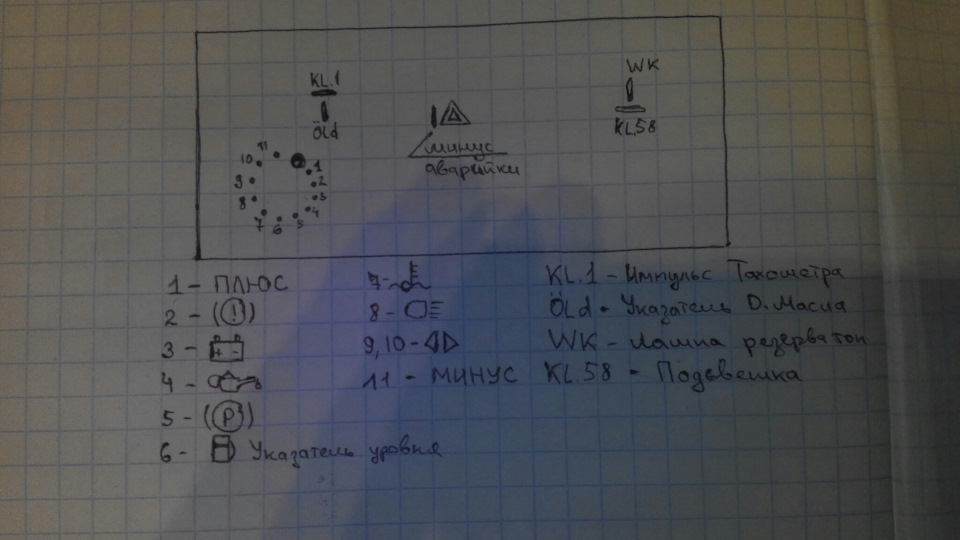 KL.1
WK
Öld
KL.58
минус
аварийки
11
10
9
8
7
6
5
4
3
2
1
1 - ПЛЮС
2 - (!)
3 - + -
4 -
5 - (P)
6 - Указатель уровня
7 -
8 -
9,10 -
11 - МИНУС
KL.1 - Импульс Тахометра
Öld - Указатель D. Масла
WK - Лампа резерва топ
KL.58 - Подсветка